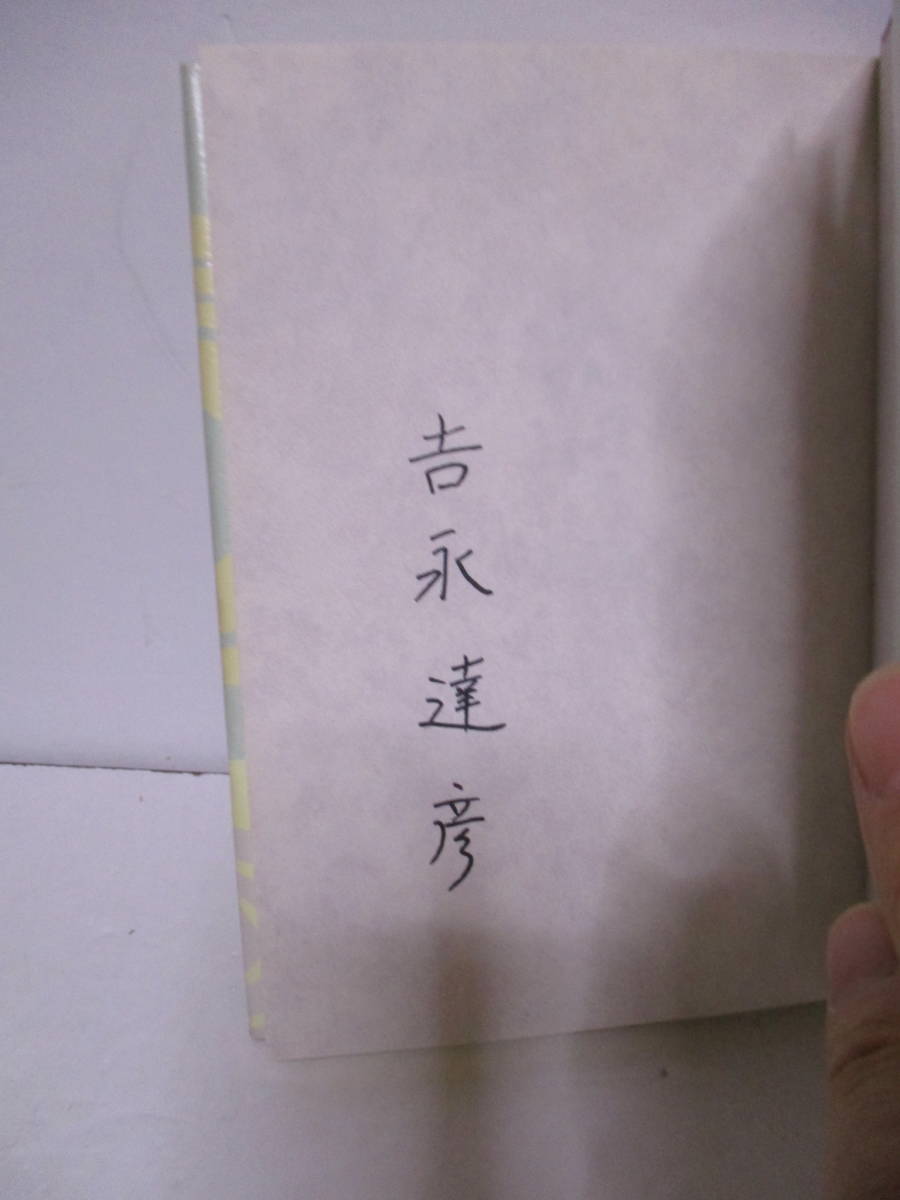 吉永達彦